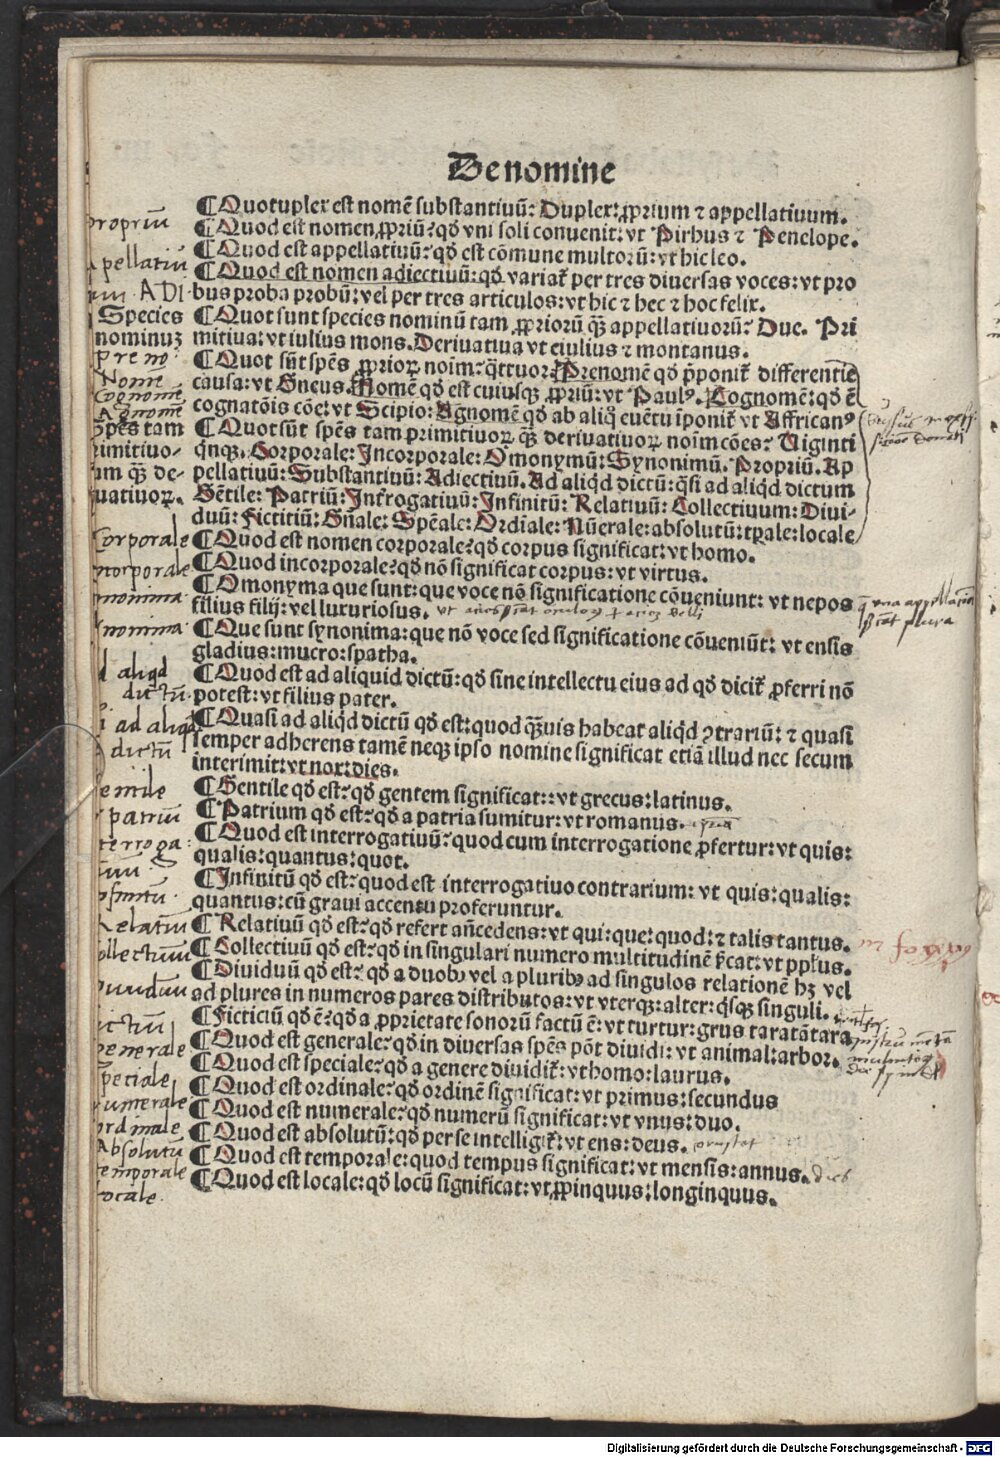 De nomine
¶ Quotuplex est nomē substantiuū: Duplex: ꝓprium ⁊ appellatiuum.
propriū
¶ Quod est nomen ꝓpriū? qđ vni soli conuenit: vt Pirhus ⁊ Penelope.
¶ Quod est appellatiuū: qđ est cōmune multorū: vt hic leo.
appellatiū
¶ Quod est nomen adiectiuū: qđ variat᷑ per tres diuersas voces: vt pro
ADI
bus proba probū: vel per tres articulos: vt hic ⁊ hec ⁊ hoc felix.
Species
¶ Quot sunt species nominū tam ꝓprioru᷑ q̄ꝫ appellatiuorū: Due. Pri
nominuꝫ
mitiua: vt iulius mons. Deriuatiua vt eiulius ⁊ montanus.
Preno
¶ Quot sūt spēs ꝓprioꝝ noīm: q̄ttuor: Prenomē qđ p̄ponit᷑ differentie
Nomē
causa: vt Gneus. Nomē qđ est cuiusqꝫ ꝓpriū: vt Paulꝰ. Cognomē: qđ ē
Cognomē
cognatōis cōe: vt Scipio: Agnomē qđ ab aliq̄ euētu īponit᷑ vt Affricanꝰ
Agnomē
Spēs tam
¶ Quot sūt spēs tam primitiuoꝝ q̄ꝫ deriuatiuoꝝ noīm cōes: Uiginti
rimitiuo-
q̄nqꝫ. Corporale: Incorporale: Omonymū: Synonimū. Propriū. Ap
um q̄ꝫ de-
pellatiuū: Substantiuū: Adiectiuū. Ad aliqđ dictū: q̄si ad aliqđ dictum
iuatiuoꝝ.
Gētile: Patriū: Int᷑rogatiuū: Infinitū: Relatiuū: Collectiuum: Diui-
duū: Fictitiū: Gn̄ale: Spēale: Ordīale: Nūerale: absolutū: tꝑale: locale
Corporale
¶ Quod est nomen corporale? qđ corpus significat: vt homo.
ncorporale
¶ Quod incorporale? qđ nō significat corpus: vt virtus.
monima
¶ Omonyma que sunt: que voce nō significatione cōueniunt: vt nepos
filius filij: vel luxuriosus.
nonima
¶ Que sunt synonima: que nō voce sed significatione cōueniūt: vt ensis
gladius: mucro: spatha.
d aliqd
¶ Quod est ad aliquid dictū: qđ sine intellectu eius ad qđ dicit᷑ ꝓferri nō
dictū
potest: vt filius pater.
i ad aliqd
¶ Quasi ad aliqđ dictū qđ est: quod q̄ꝫuis habeat aliqđ ꝯtrariū: ⁊ quasi
dictū
semper adherens tamē neqꝫ ipso nomine significat etiā illud nec secum
interimit: vt nox: dies.
entile
¶ Gentile qđ est: qđ gentem significat: : vt grecus: latinus.
patriū
¶ Patrium qđ est: qđ a patria sumitur: vt romanus.
terroga
¶ Quod est interrogatiuū: quod cum interrogatione ꝓfertur: vt quis:
qualis: quantus: quot.
nfinitū
¶ Infinitū qđ est: quod est interrogatiuo contrarium: vt quis: qualis:
quantus: cū graui accentu proferuntur.
Relatiū
¶ Relatiuū qđ est: qđ refert an̄cedens: vt qui: que: quod: ⁊ talis tantus.
ollectiuū
¶ Collectiuū qđ est: qđ in singulari numero multitudinē s̄cat: vt pp̄lus.
¶ Diuiduū qđ est: qđ a duobꝰ vel a pluribꝰ ad singulos relationē hꝫ vel
uiuiduū
ad plures in numeros pares distributos: vt vterqꝫ: alter: q̄sqꝫ singuli.
ictiū
¶ Ficticiū qđ ē: qđ a ꝓprietate sonorū factū ē: vt turtur: grus taratātara
enerale
¶ Quod est generale: qđ in diuersas spēs pōt diuidi: vt animal: arbor.
¶ Quod est speciale: qđ a genere diuidit᷑: vt homo: laurus.
peciale
¶ Quod est ordinale: qđ ordinē significat: vt primus: secundus
umerale
¶ Quod est numerale: qđ numerū significat: vt vnus: duo.
rdinale
¶ Quod est absolutū: qđ per se intelligit᷑: vt ens: deus.
Absolutū
¶ Quod est temporale: quod tempus significat: vt mensis: annus. dies
emporale
¶ Quod est locale: qđ locū significat: vt ꝓpinquus: longinquus.
ocale
Digitalisierung gefördert durch die Deutsche Forschungsgemeinschaft - DFG